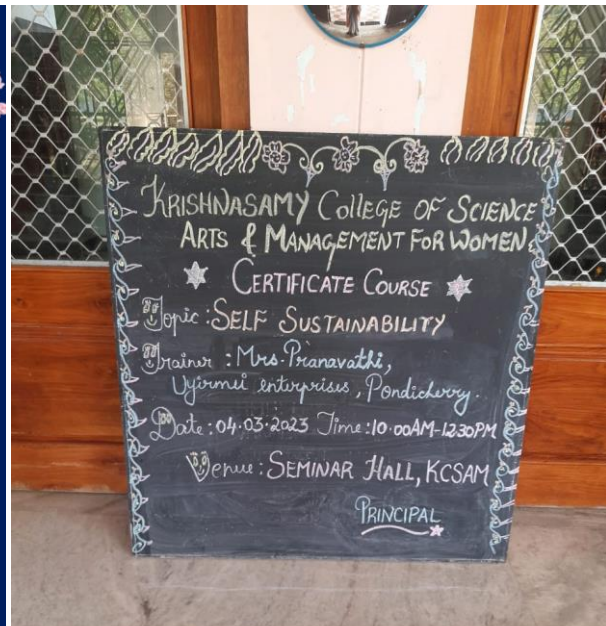 KRISHNASAMY COLLEGE OF SCIENCE
ARTS & MANAGEMENT FOR WOMEN
CERTIFICATE COURSE
Topic : SELF SUSTAINABILITY
Trainer : Mrs. Pranavathi,
Uyirmei enterprises, Pondicherry.
Date : 04.03.2023 Time : 10.00AM-12.30PM
Venue : SEMINAR HALL, KCSAM
PRINCIPAL